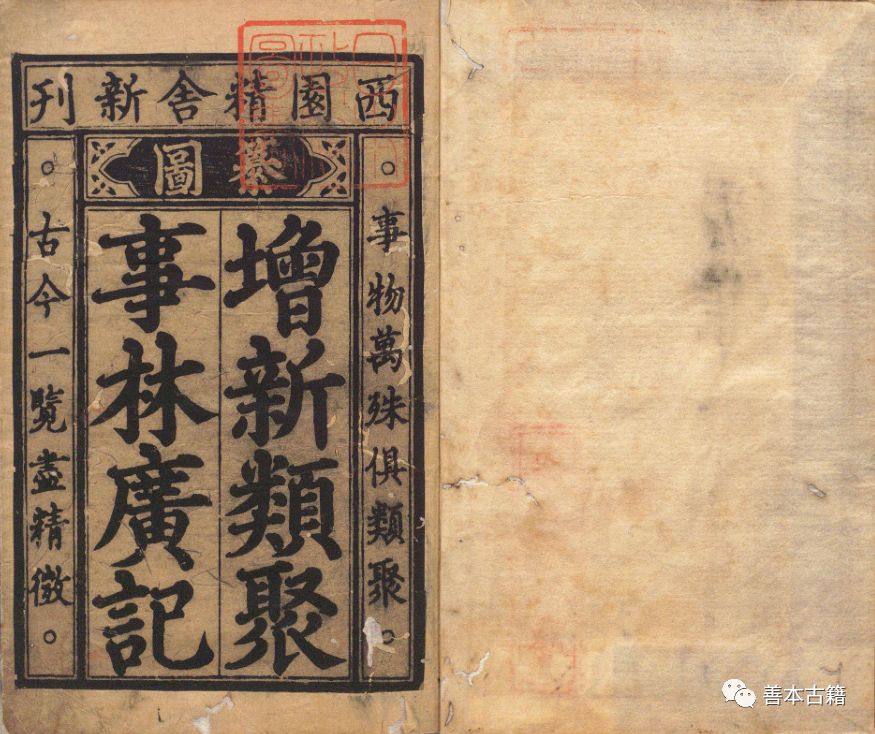 西園精舍新刊
纂圖
事物萬殊俱類聚
增新類聚
事林廣記
古今一覽盡精微
善本古籍